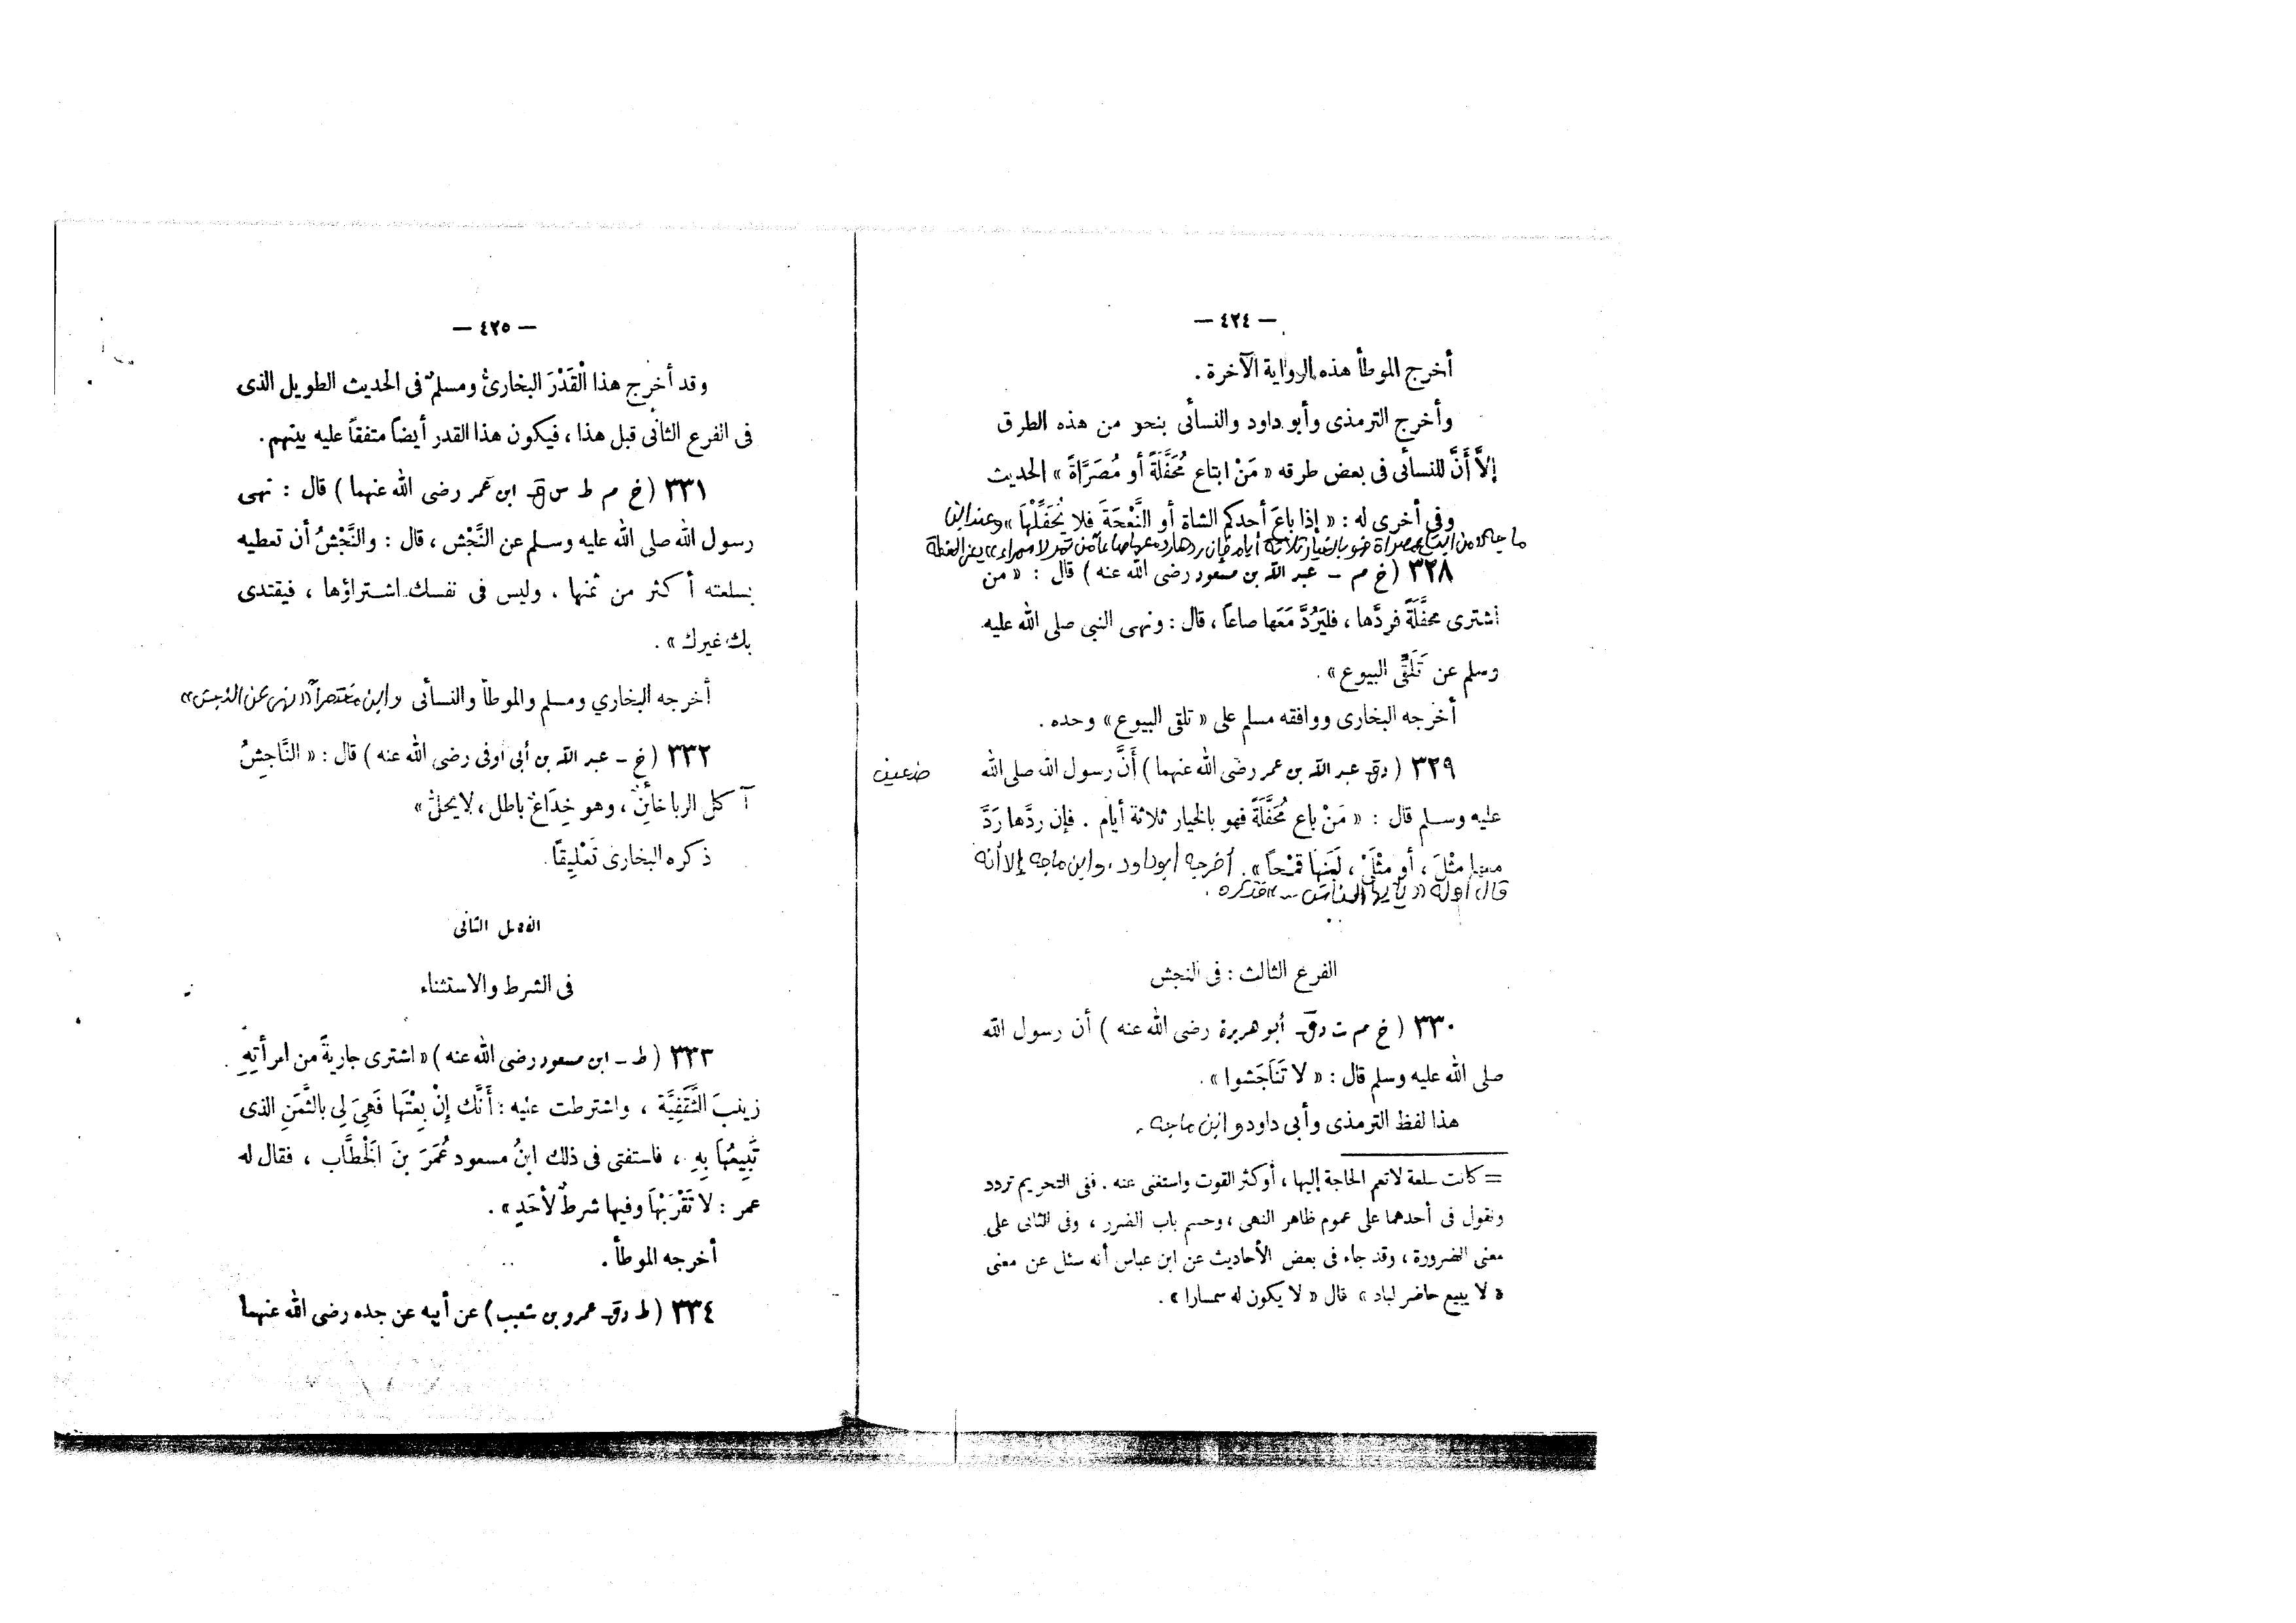 — ٤٢٤ —
أخرج الموطأ هذه الرواية الآخرة .
وأخرج الترمذى وأبو داود والنسائى بنحو من هذه الطرق
إلاَّ أَنَّ للنسائى فى بعض طرقه « مَنْ ابتاع مُحَفَّلَةً أو مُصَرَّاةً » الحديث
وفى أخرى له : « إذا باعَ أحدكم الشاة أو النَّعْجَةَ فلا يُحَفِّلْهَا » وعند ابن
ماجه « من ابتاع مصراة فهو بالخيار ثلاثة أيام فإن ردها رد معها صاعاً من تمر لا سمراء » يعنى الحنطة
٣٢٨ ( خ م – عبد الله بن مسعود رضى الله عنه ) قال : « من
اشترى محفَّلَةً فردَّها ، فليَرُدَّ مَعَها صاعاً ، قال : ونهى النبى صلى الله عليه
وسلم عن تَلَقِّى البيوع » .
أخرجه البخارى ووافقه مسلم على « تلقى البيوع » وحده .
٣٢٩ ( د ق – عبد الله بن عمر رضى الله عنهما ) أَنَّ رسول الله صلى الله
ضعيف
عليه وسلم قال : « مَنْ باع مُحَفَّلَةً فهو بالخيار ثلاثة أيام . فإن ردَّها رَدَّ
معها مِثْلَ ، أو مِثْلَىْ ، لَبَنِها قَمْحاً » . أخرجه أبو داود ، وابن ماجه إلا أنه
قال أوله « يا أيها الناس ... » فذكره .
الفرع الثالث : فى النجش
٣٣٠ ( خ م ت د ق – أبو هريرة رضى الله عنه ) أن رسول الله
صلى الله عليه وسلم قال : « لا تَنَاجَشوا » .
هذا لفظ الترمذى وأبى داود وابن ماجه .
= كانت سلعة لا تعم الحاجة إليها ، أو كثر القوت واستغنى عنه . ففى التحريم تردد
ونقول فى أحدهما على عموم ظاهر النهى ، وحسم باب الضرر ، وفى الثانى على
معنى الضرورة ، وقد جاء فى بعض الأحاديث عن ابن عباس أنه سئل عن معنى
« لا يبيع حاضر لباد » قال « لا يكون له سمسارا » .
— ٤٢٥ —
وقد أخرج هذا الْقَدْرَ البخارىُّ ومسلمٌ فى الحديث الطويل الذى
فى الفرع الثانى قبل هذا ، فيكون هذا القدر أيضاً متفقاً عليه بينهم .
٣٣١ ( خ م ط س ق – ابن عمر رضى الله عنهما ) قال : نهى
رسول الله صلى الله عليه وسلم عن النَّجْش ، قال : والنَّجْشُ أن تعطيه
بسلعته أكثر من ثمنها . وليس فى نفسك اشتراؤها ، فيقتدى
بك غيرك » .
أخرجه البخاري ومسلم والموطأ والنسائى وابن مختصراً « نهى عن النجش »
٣٣٢ ( خ – عبد الله بن أبى أوفى رضى الله عنه ) قال : « النَّاجِشُ
آكل الربا خائِنٌ ، وهو خِدَاعٌ باطل ، لا يحلُّ »
ذكره البخارى تَعْلِيقًا .
الفصل الثانى
فى الشرط والاستثناء
٣٣٣ ( ط – ابن مسعود رضى الله عنه ) « اشترى جاريةً من امرأتِهِ
زينبَ الثَّقَفِيَّة ، واشترطت عليه : أَنَّك إنْ بِعْتَها فَهِىَ لِي بالثَّمَنِ الذى
تَبِيعُهَا بِهِ ، فاستفتى فى ذلك ابنُ مسعود عُمَرَ بنَ الْخَطَّاب ، فقال له
عمر : لا تَقْرَبْهَا وفيها شرطٌ لأَحَدٍ » .
أخرجه الموطأ .
٣٣٤ ( ط د ق – عمرو بن شعيب ) عن أبيه عن جده رضى الله عنهما